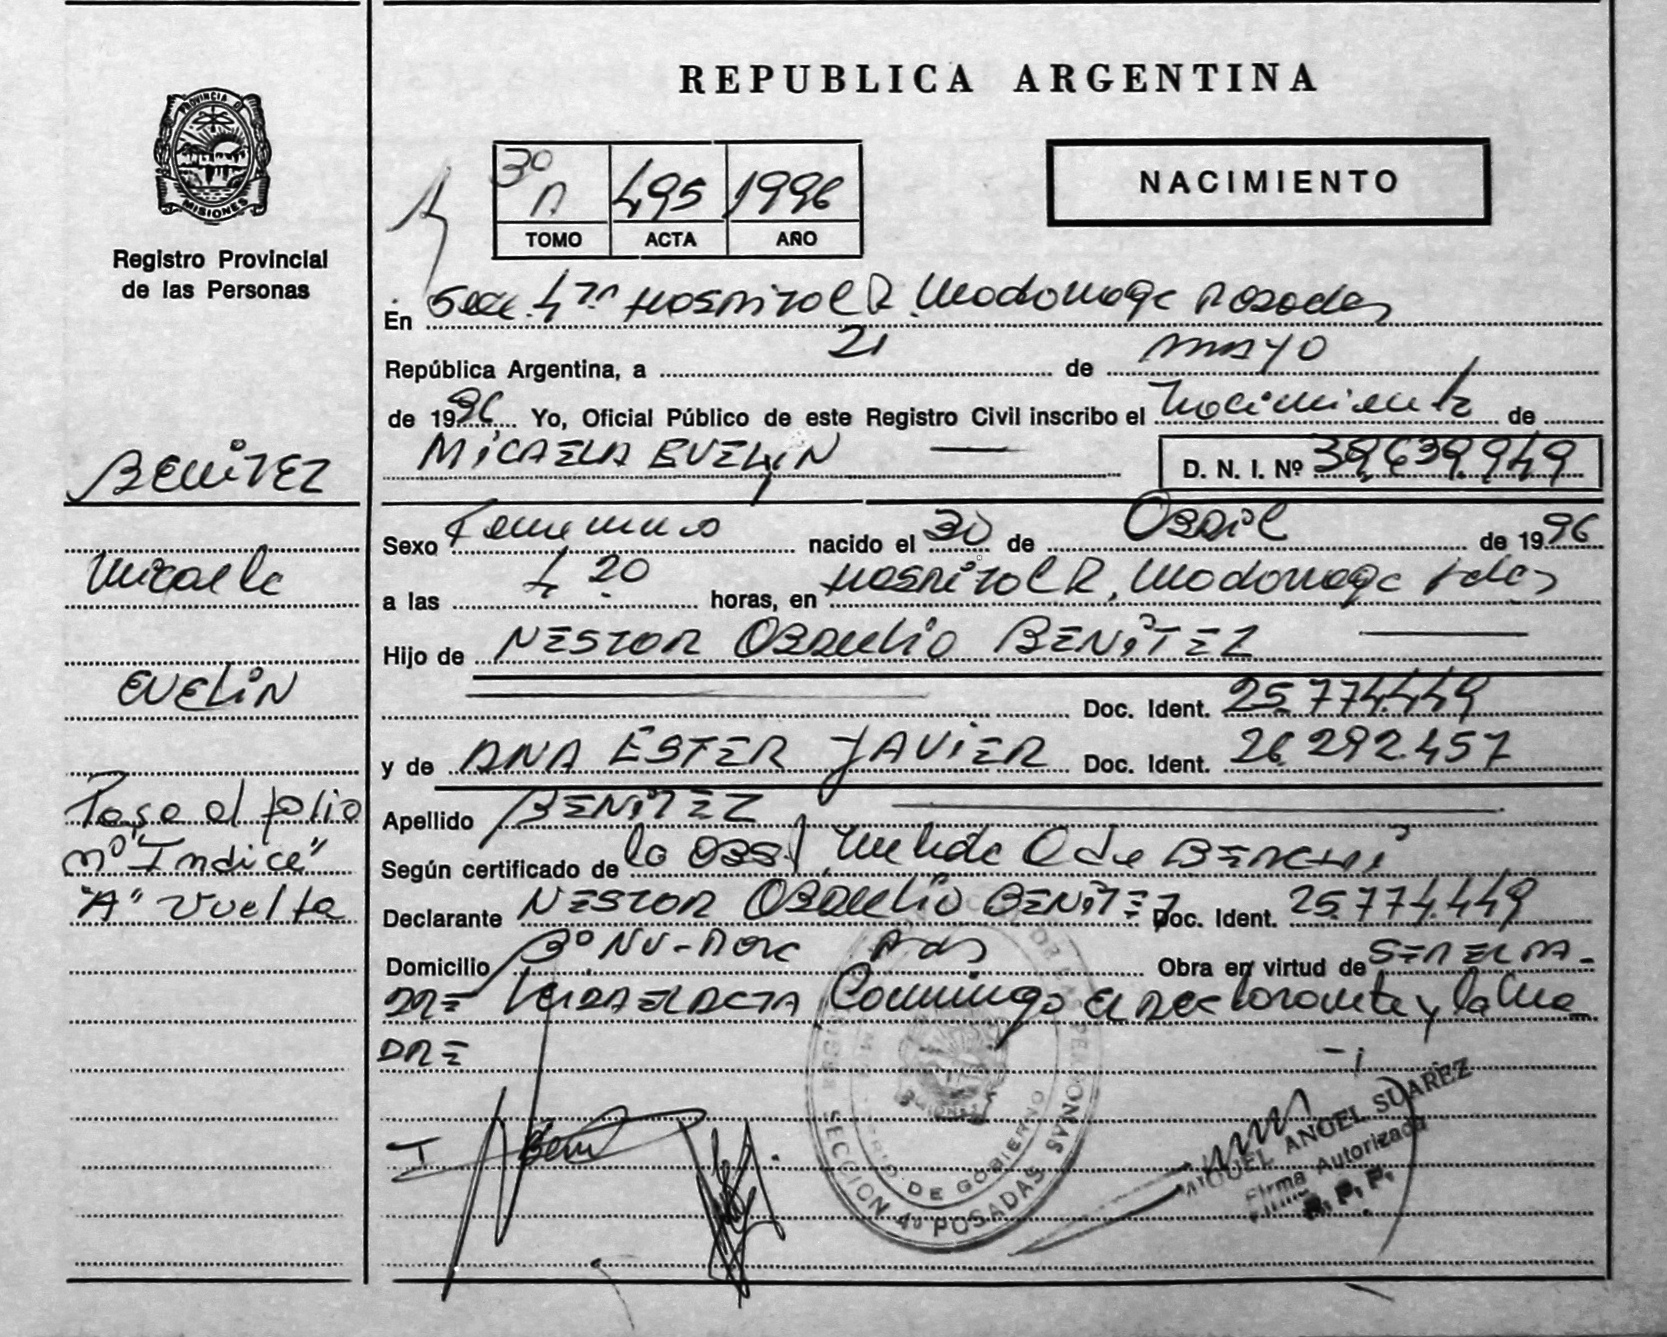 REPUBLICA ARGENTINA
PROVINCIA D
MISIONES
Registro Provincial
de las Personas
3º A 495 1996
TOMO ACTA AÑO
NACIMIENTO
En Secc. 4ta Hospital R. Madariaga Posadas
República Argentina, a 21 de mayo
de 1996 Yo, Oficial Público de este Registro Civil inscribo el nacimiento de
MICAELA EVELIN D. N. I. Nº 39,639.949
BENITEZ
Micaela
EVELIN
Sexo Femenino nacido el 30 de ABRIL de 1996
a las 4.20 horas, en Hospital R. Madariaga Pdas
Hijo de NESTOR OBDULIO BENITEZ
Doc. Ident. 25.774.449
y de ANA ESTER JAVIER Doc. Ident. 26.292.457
Pasa al folio
nº "Indice"
"A" vuelta
Apellido BENITEZ
Según certificado de la OBST. de
Declarante NESTOR OBDULIO BENITEZ Doc. Ident. 25.774.449
Domicilio Bº Pds Obra en virtud de SER EL PA-
DRE LEIDA EL ACTA Conmigo EL Declarante y la Ma-
DRE
SECCION 4ta POSADAS
DE GOBIERNO
MIGUEL ANGEL SUAREZ
Firma Autorizada
R. P. P.